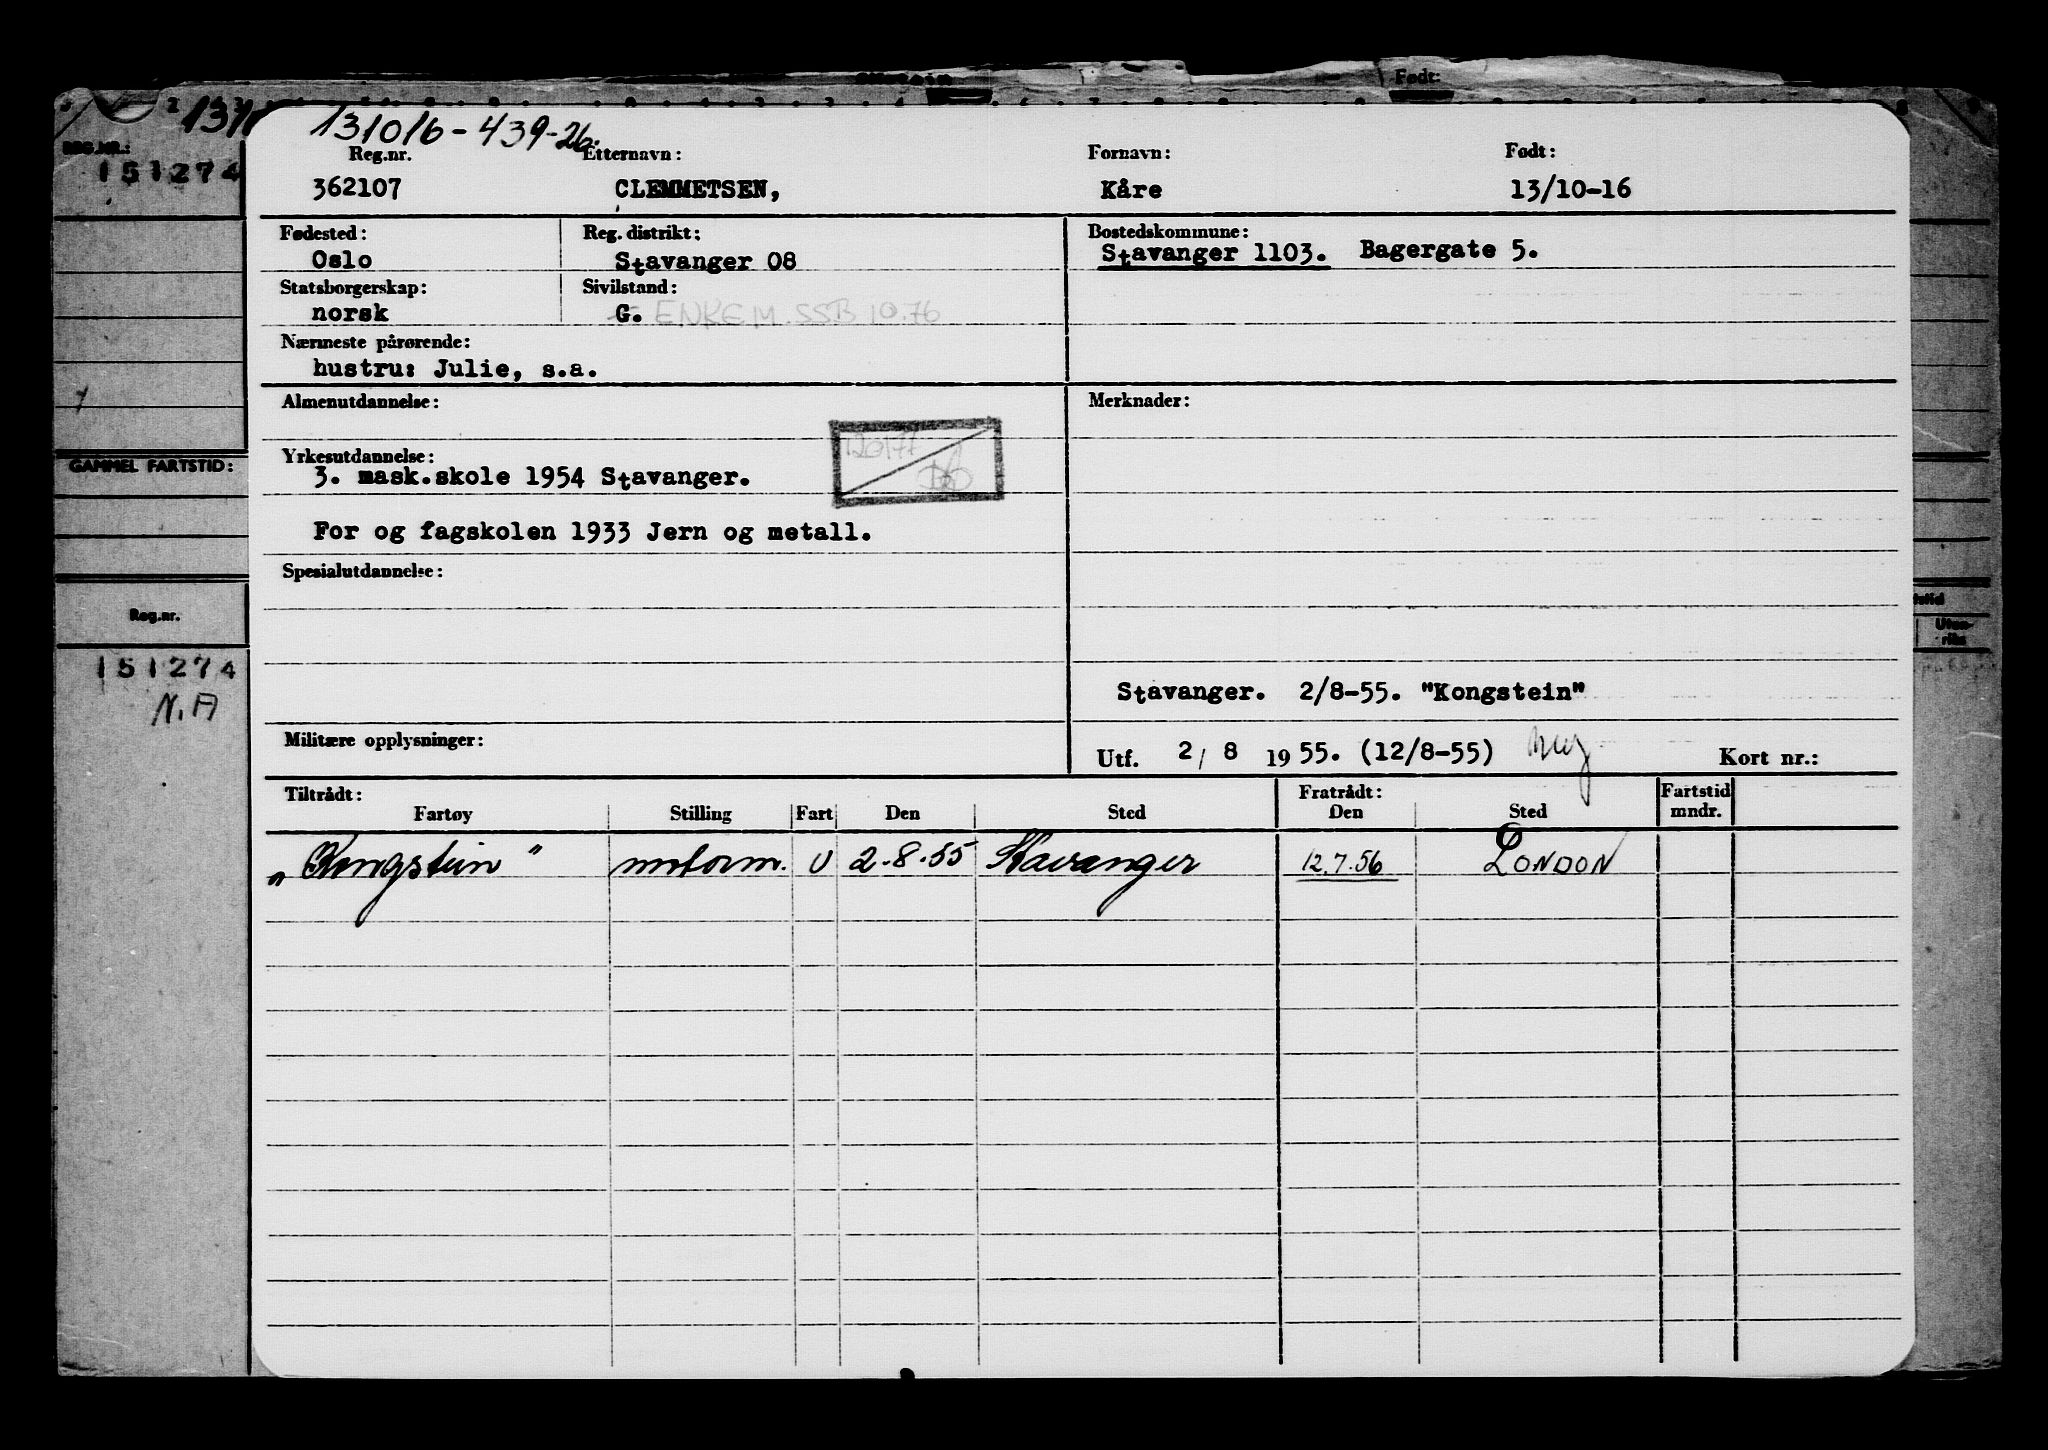 Født:
131016-439-26.
REG.NR.:
151274
Reg.nr. Etternavn: Fornavn: Født:
362107 CLEMMETSEN, Kåre 13/10-16
Fødested: Reg. distrikt: Bostedskommune:
Oslo Stavanger 08 Stavanger 1103. Bagergate 5.
Statsborgerskap: Sivilstand:
norsk G. ENKEM. SSB 10.76
Nærmeste pårørende:
hustru: Julie, s.a.
Almenutdannelse: Merknader:
120177
Yrkesutdannelse:
3. mask.skole 1954 Stavanger.
GAMMEL FARTSTID:
For og fagskolen 1933 Jern og metall.
Spesialutdannelse:
Reg.nr.
Uten-
riks
151274
N.A
Stavanger. 2/8-55. "Kongstein"
Militære opplysninger:
Utf. 2/8 1955. (12/8-55) Kort nr.:
Tiltrådt: Fratrådt: Fartstid
Fartøy Stilling Fart Den Sted Den Sted mndr.
"Kongstein" motorm. U 2.8.55 Stavanger 12.7.56 LONDON